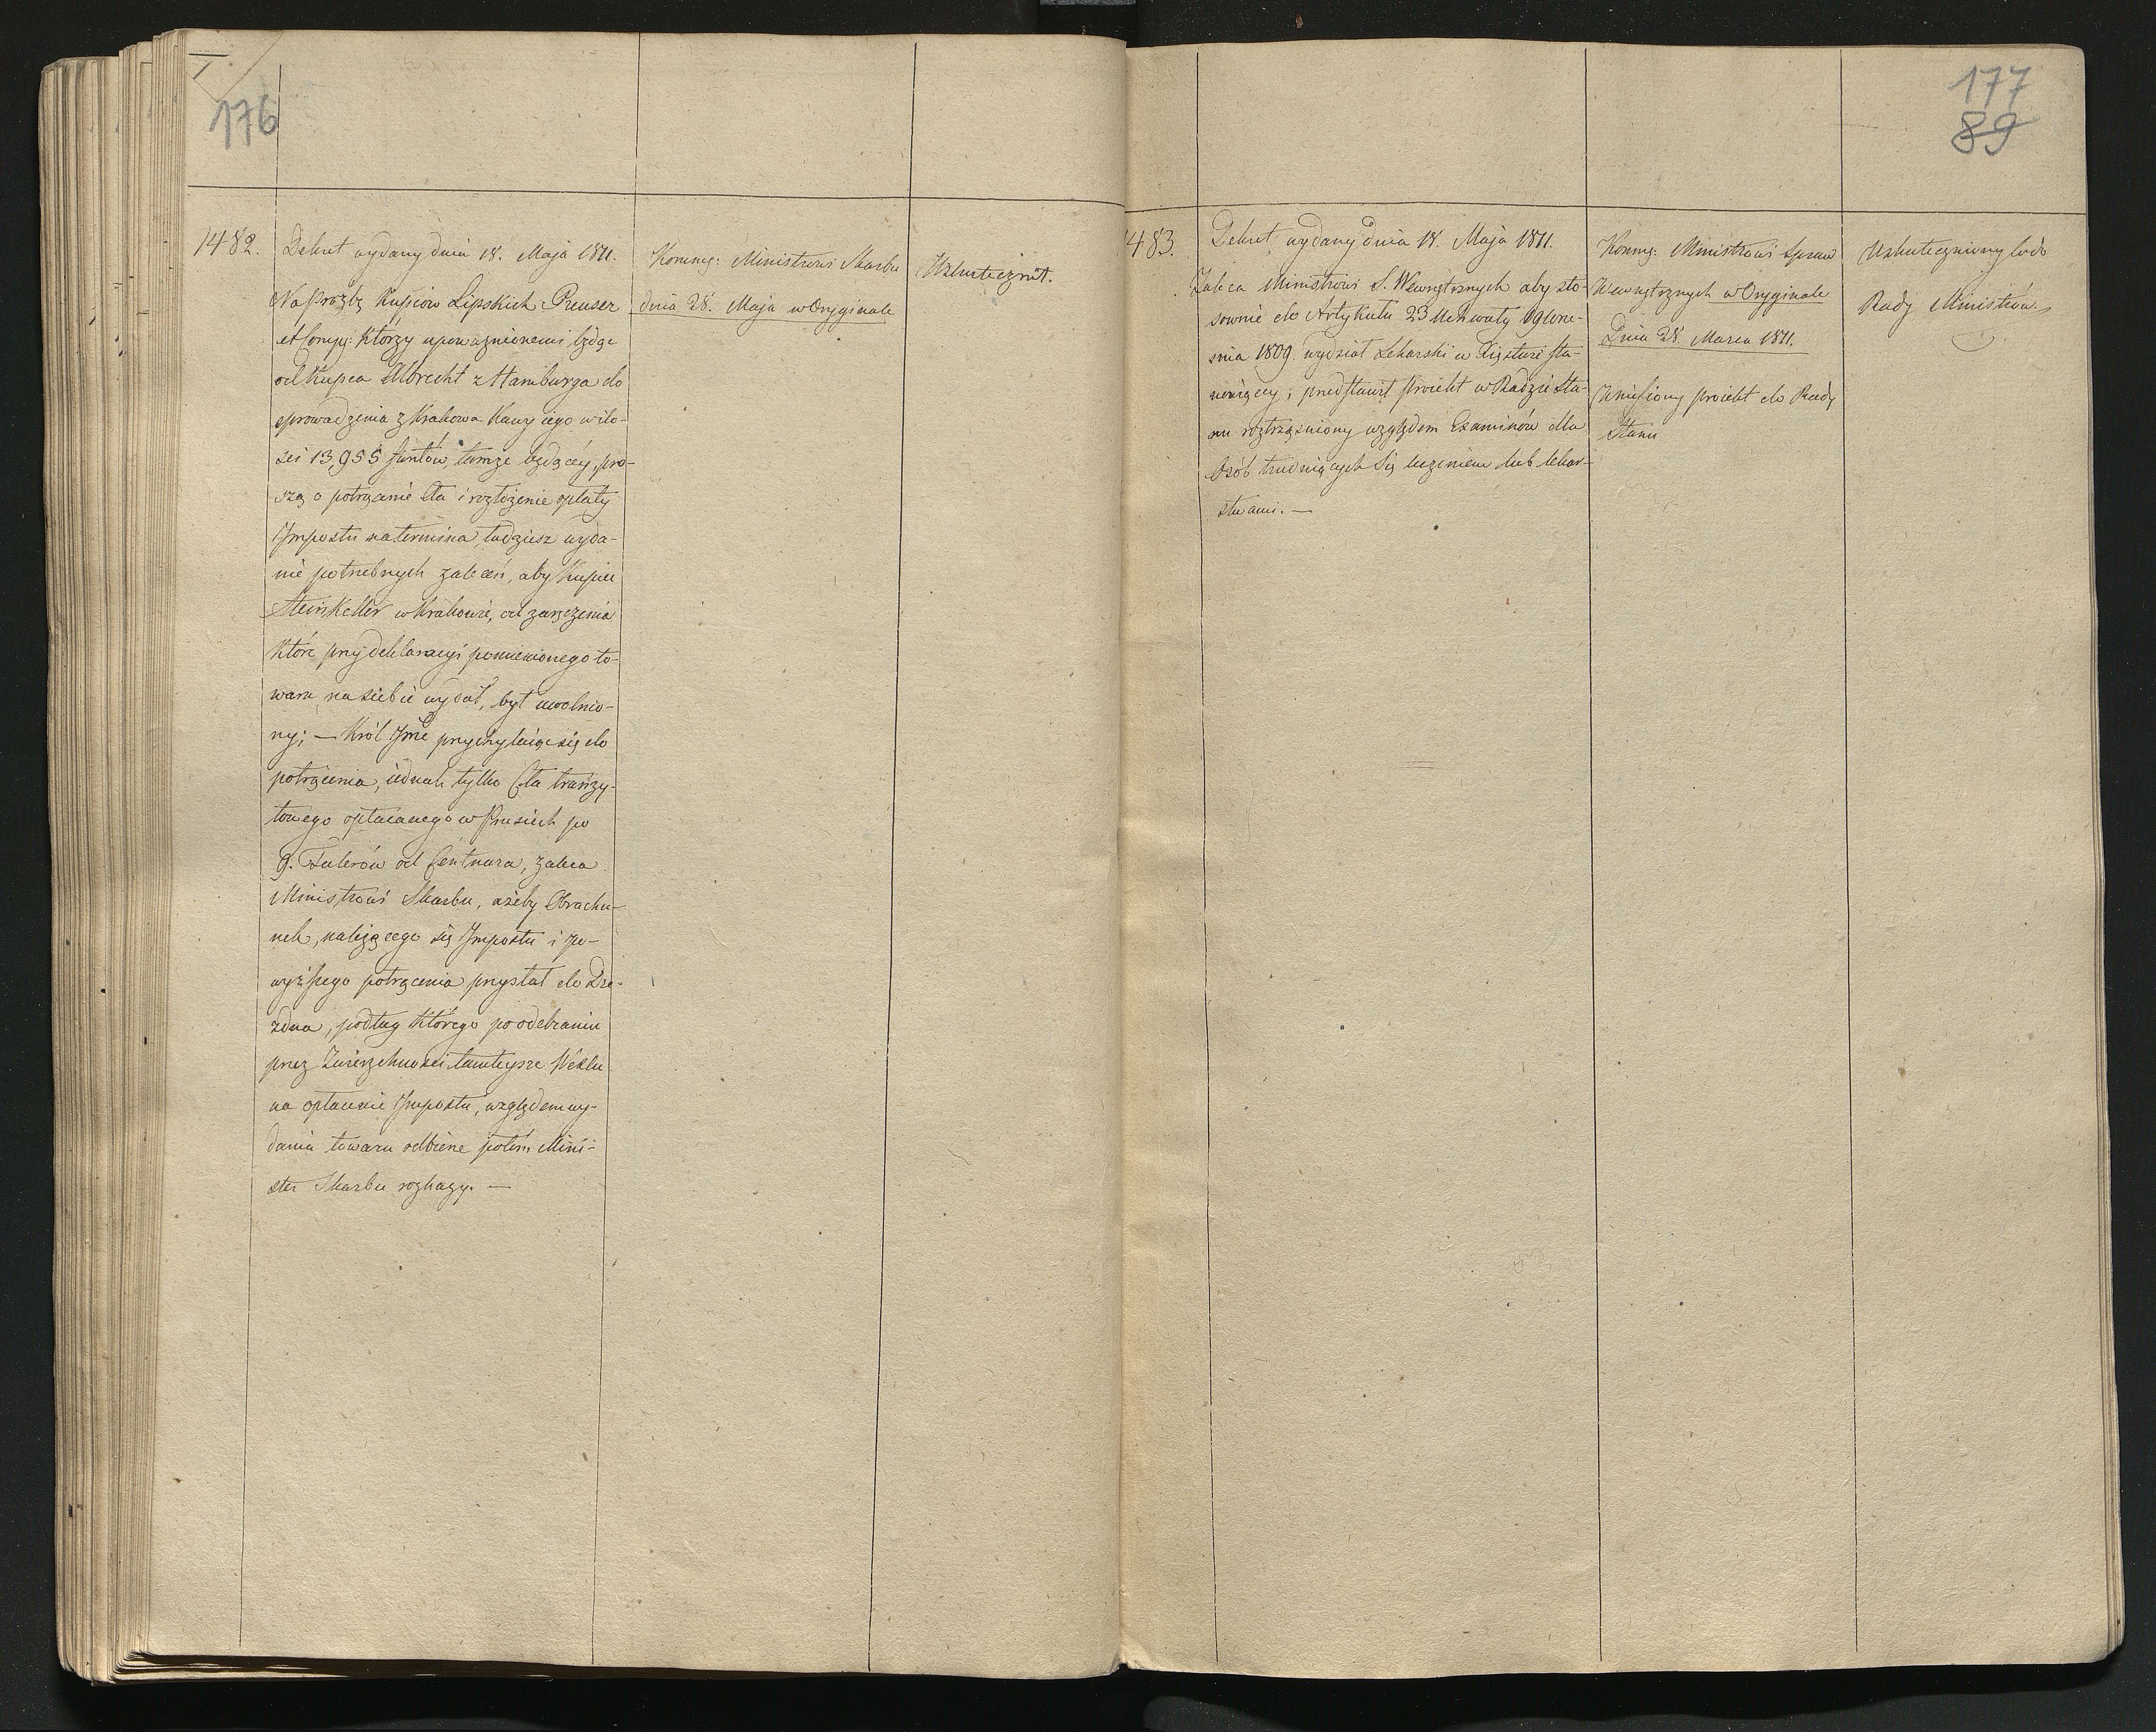 176
1482.
Dekret wydany dnia 18. Maja 1811.
Na Prozbę Kupców Lipskich Preuser
et Comp: Którzy upoważnionemi będąc
od Kupca Albrecht z Hamburga do
sprowadzenia z Krakowa Kawy iego w ilo-
sci 13,955 funtów, tamże będącéy, pro-
szą o potrącenie Cła i rozłożenie opłaty
Impostu na termina, tudzież wyda-
nie potrzebnych zaleceń, aby Kupiec
Steinkeller w Krakowie, od zaręczenia
które przy deklaracyi pomienionego to-
waru na siebie wydał, był uwolnio-
ny; — Król Jmć przychylaiąc się do
potrącenia, iednak tylko Cła tranzy-
towego opłacanego w Prusiech po
9. Talerów od Centnara, zaleca
Ministrowi Skarbu, ażeby Obrachu-
nek, należącego się Impostu i po-
wyższego potrącenia przysłał do Dre-
zdna, podług którego po odebraniu
przez Zwierzchności tamteysze Wexlu
na opłacenie Impostu, względem wy-
dania towaru odbierze potém Mini-
ster Skarbu rozkazy. —
Kommg: Ministrowi Skarbu
dnia 28. Maja w Oryginale
Uskutecznił.
177
89
1483.
Dekret wydany dnia 18. Maja 1811.
Zaleca Ministrowi S. Wewnętrznych aby sto-
sownie do Artykułu 23 Uchwały 19 Wrze-
śnia 1809. wydział Lekarski w Xięstwie sta-
nowiącey; przedstawił proiekt w Radzie Sta-
nu roztrząśniony względem Examinów dla
Osób trudniących się leczeniem lub lekar-
stwami. —
Kommg: Ministrowi Spraw
Wewnętrznych w Oryginale
Dnia 28. Marca 1811.
Wniesiony proiekt do Rady
Stanu
Uskuteczniony
Rady Ministrów.